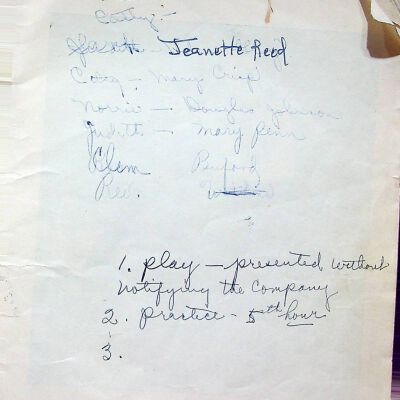 Casting:-
Jeanette Reed
Cora - Mary Crisp
Norrie - Douglas Johnson
Judith - Mary Penn
Clem Penford
Red.
1. play - presented without
notifying the Company
2. practice - 5th hour
3.